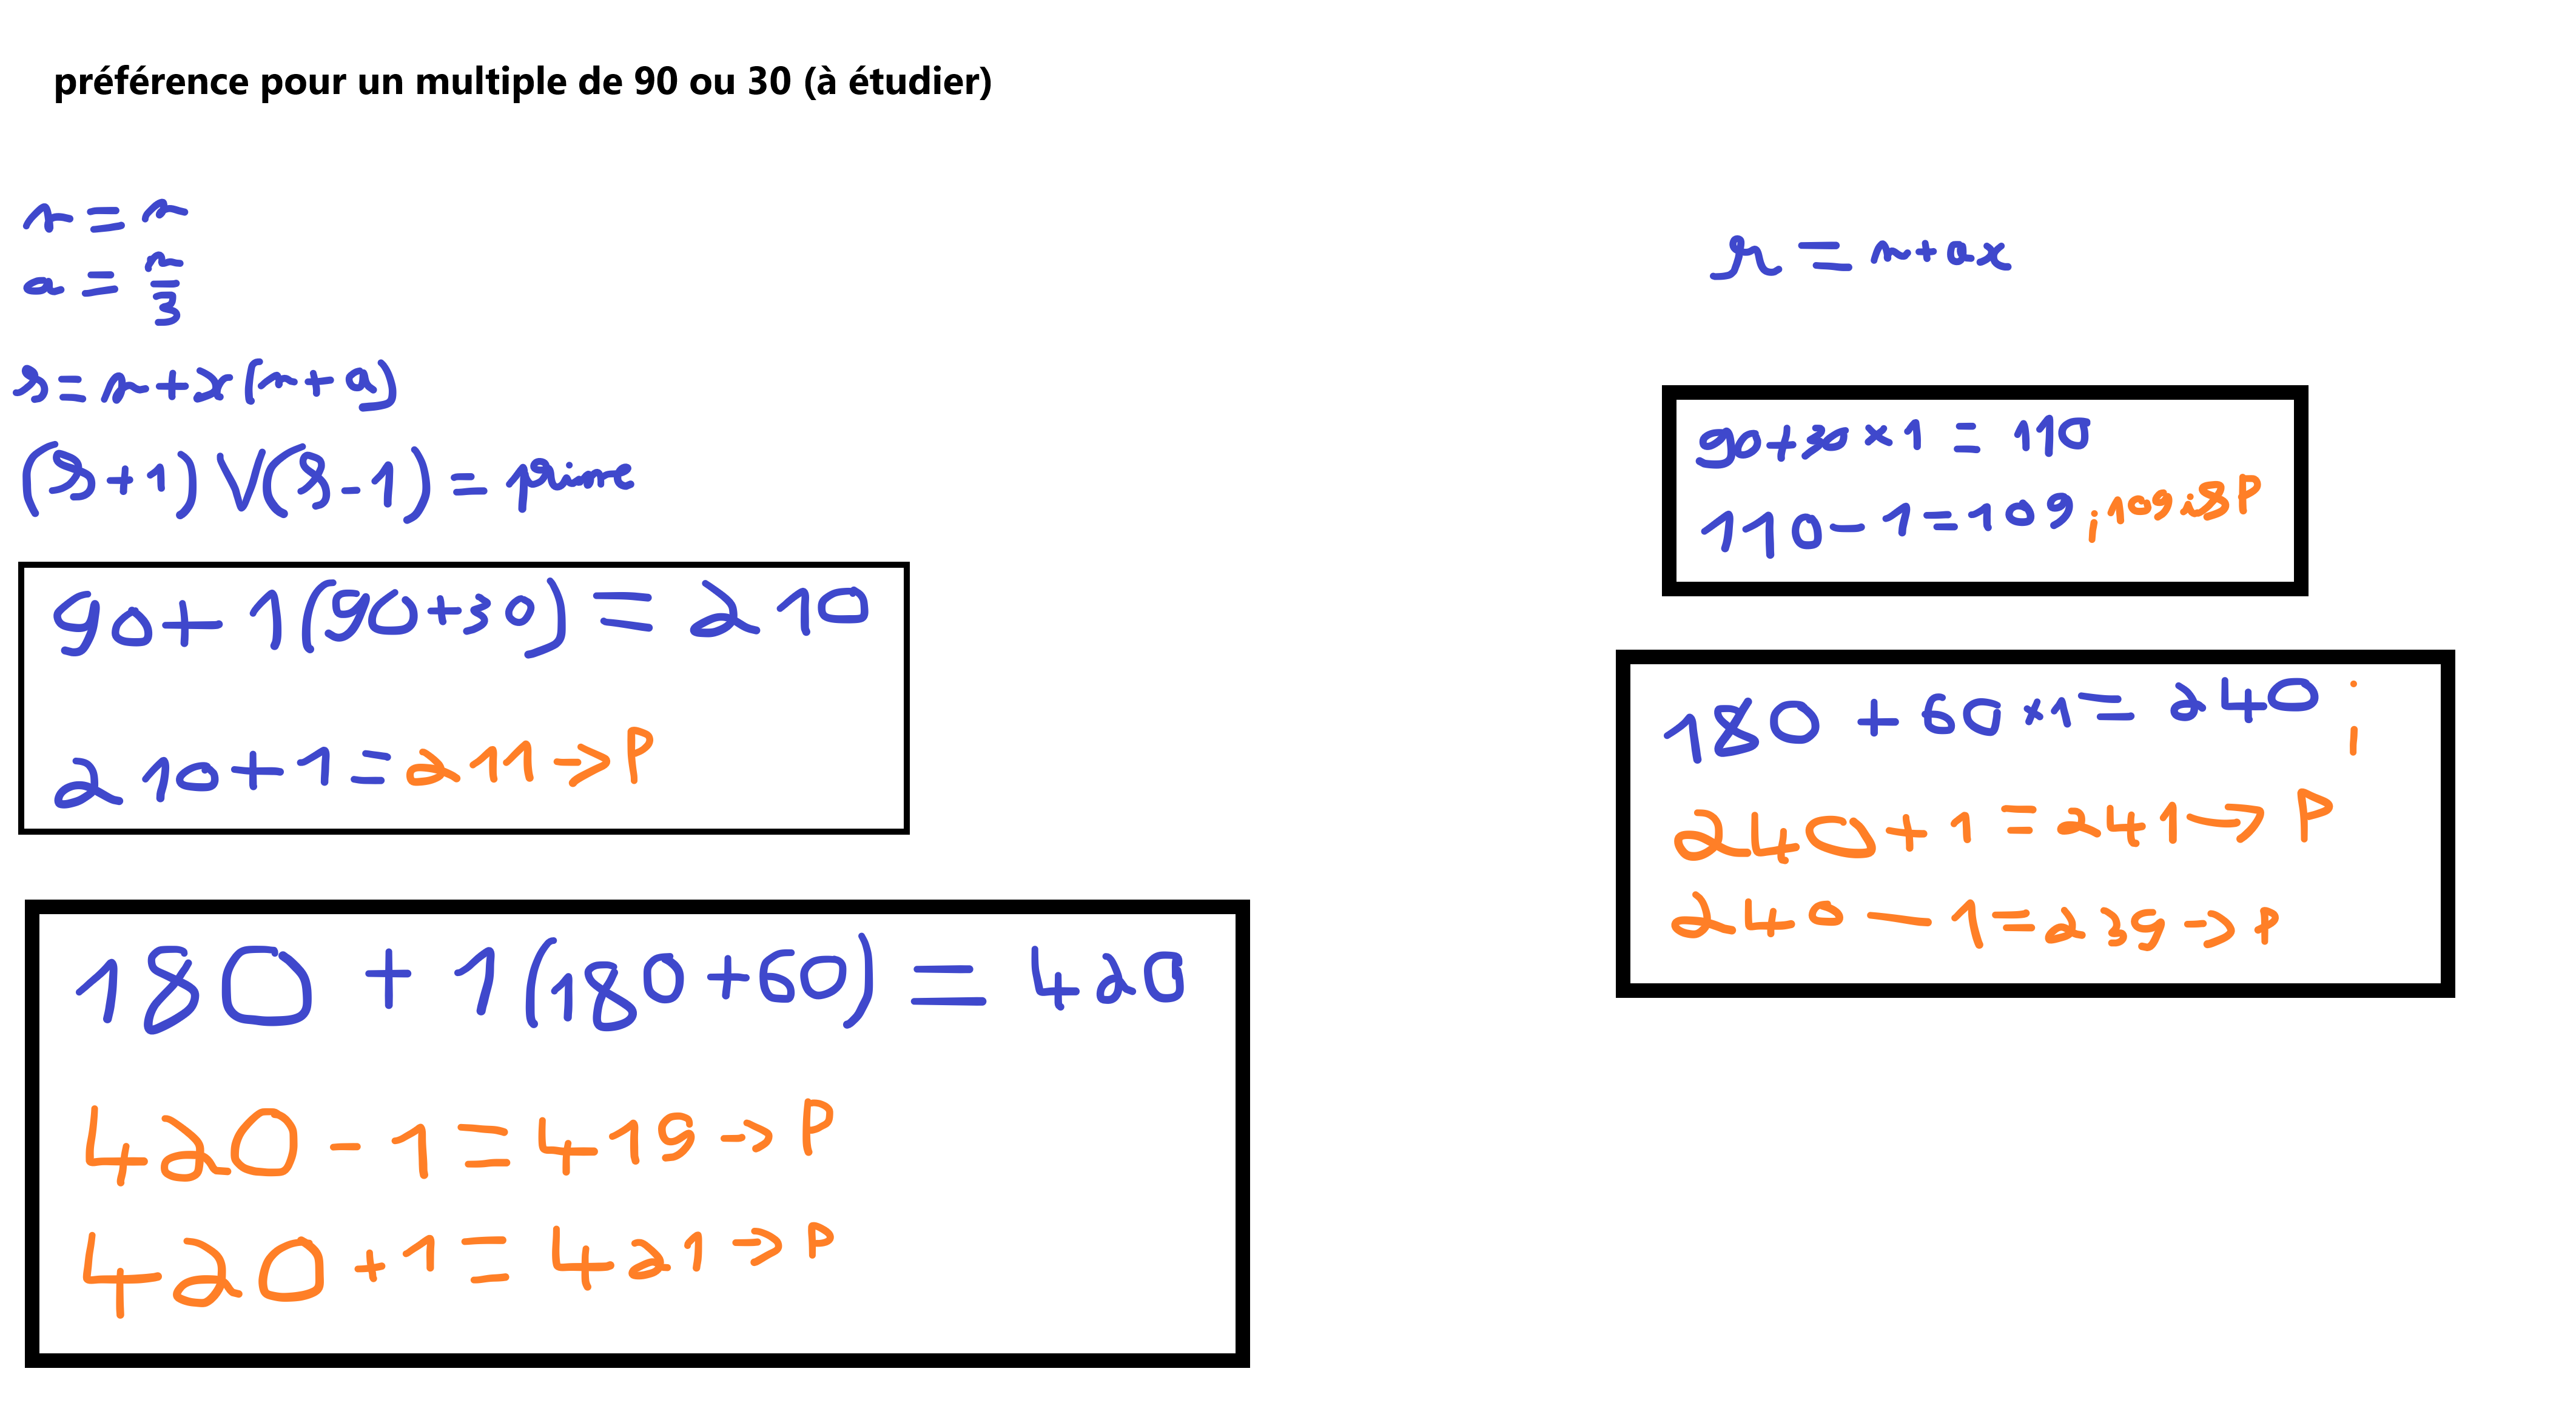 préférence pour un multiple de 90 ou 30 (à étudier)
n = n
a = n/3
r = n + x(n + a)
(r + 1) V (r - 1) = prime
90 + 1(90 + 30) = 210
210 + 1 = 211 → P
180 + 1(180 + 60) = 420
420 - 1 = 419 → P
420 + 1 = 421 → P
r = n + ax
90 + 30 × 1 = 110
110 - 1 = 109 ; 109 is P
180 + 60 × 1 = 240 ;
240 + 1 = 241 → P
240 - 1 = 239 → P